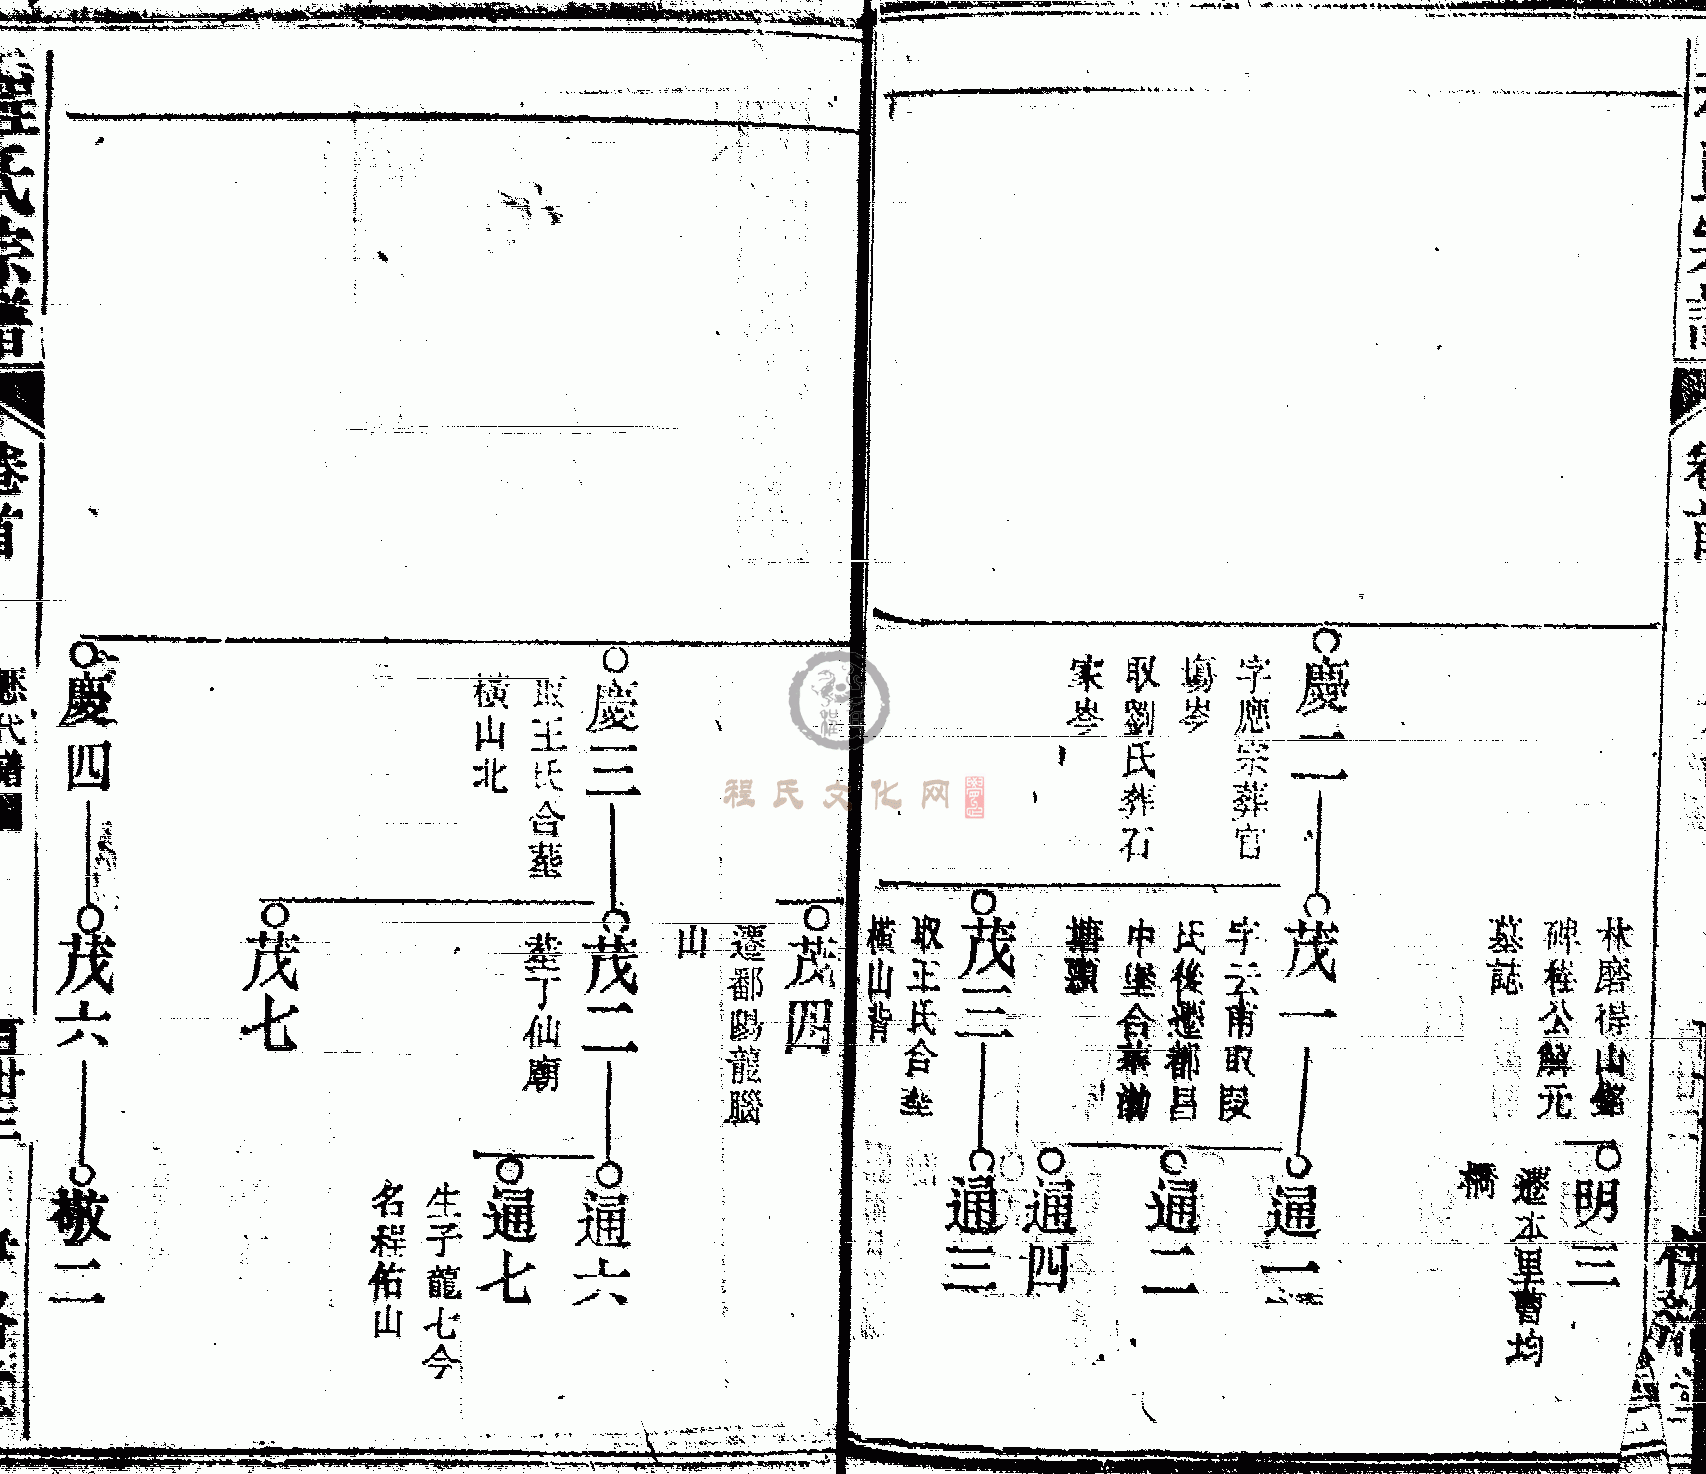 林磨得山
碑程公解元
墓誌
明三
遷本里曹均
橋
慶二
字應宗葬官
塲岑
取劉氏葬石
家岑
茂一
字云甫取段
氏後遷都昌
中堡合葬
塘
通一
通二
通四
茂三
取王氏合塟
橫山背
通三
茂四
遷鄱陽龍腦
山
慶三
取王氏合塟
橫山北
茂二
塟丁仙廟
通六
通七
生子龍七今
名程佑山
茂七
慶四
茂六
敬二
程氏宗譜
卷首
歷代譜圖
程氏文化网